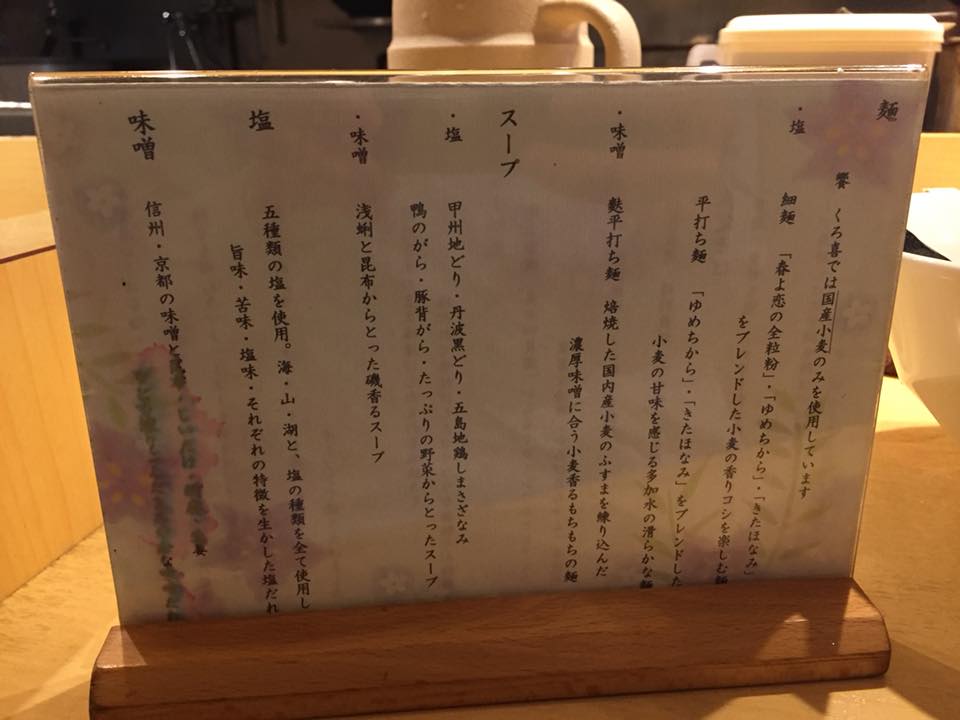 麺
饗 くろ喜では国産小麦のみを使用しています
・塩
細麺 「春よ恋の全粒粉」・「ゆめちから」・「きたほなみ」
をブレンドした小麦の香りコシを楽しむ麺
平打ち麺 「ゆめちから」・「きたほなみ」をブレンドした
小麦の甘味を感じる多加水の滑らかな麺
・味噌
麩平打ち麺 焙焼した国内産小麦のふすまを練り込んだ
濃厚味噌に合う小麦香るもちもちの麺
スープ
・塩
甲州地どり・丹波黒どり・五島地鶏しまさざなみ
鴨のがら・豚背がら・たっぷりの野菜からとったスープ
・味噌
浅蜊と昆布からとった磯香るスープ
塩
五種類の塩を使用。海・山・湖と、塩の種類を全て使用し
旨味・苦味・塩味・それぞれの特徴を生かした塩だれ
味噌
信州・京都の味噌と